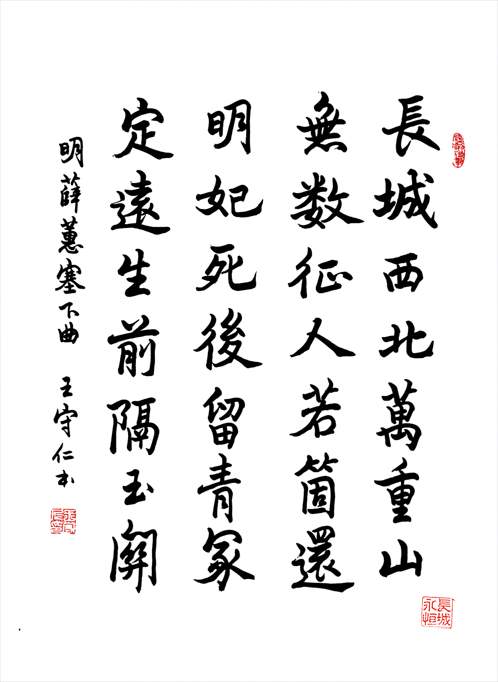 長城西北萬重山
無数征人若箇還
明妃死後留青冢
定遠生前隔玉關
明薛蕙塞下曲 王守仁书
長城永恒